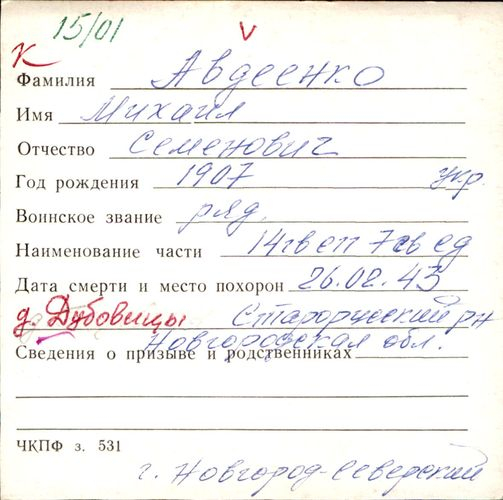 15/01
V
К
Фамилия Авдеенко
Имя Михаил
Отчество Семенович
Год рождения 1907 укр.
Воинское звание ряд.
Наименование части 14гвсп 7гв сд
Дата смерти и место похорон 26.02.43
д. Дубовицы Старорусский рн
Новгородская обл.
Сведения о призыве и родственниках
ЧКПФ з. 531
г. Новгород-Северский